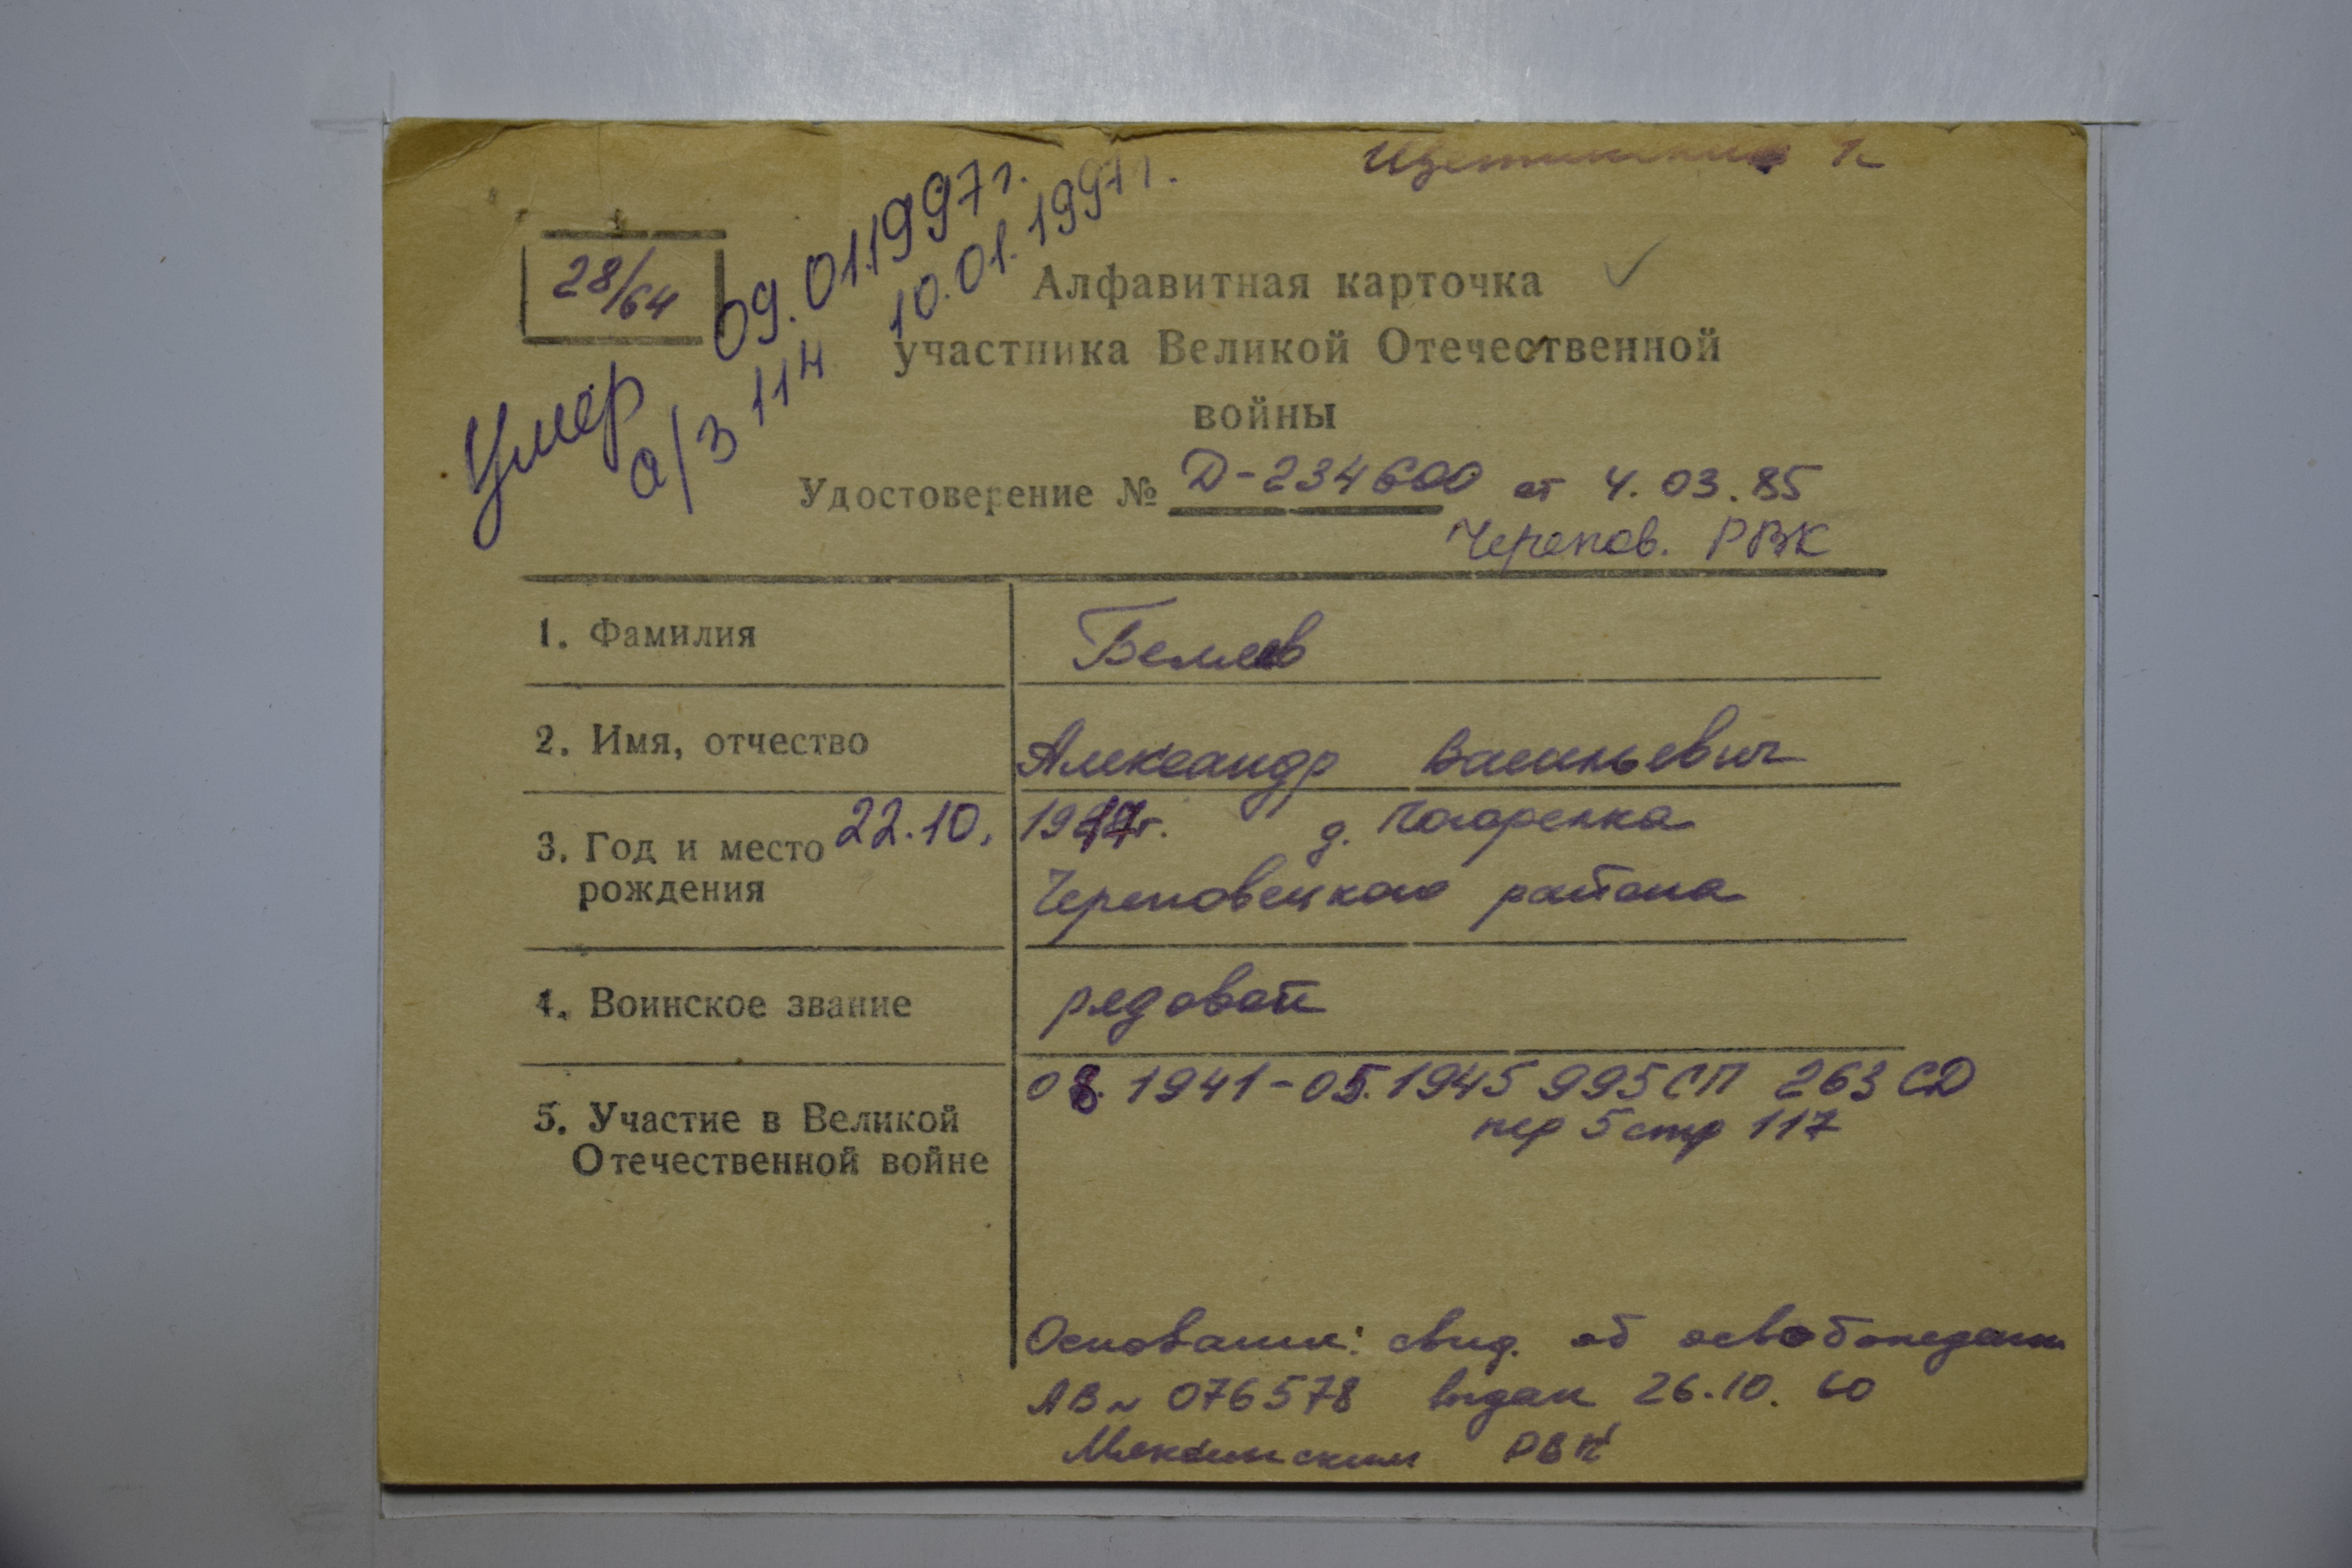 28/64
Умер 09.01.1997г.
а/з 11н 10.01.1997г.
Алфавитная карточка
участника Великой Отечественной
войны
Удостоверение № Д-234600 от 4.03.85
Черепов. РВК
1. Фамилия Беляев
2. Имя, отчество Александр Васильевич
3. Год и место рождения 22.10. д.
Череповецкого района
4. Воинское звание рядовой
5. Участие в Великой Отечественной войне 08.1941-05.1945 995 СП 263 СД
пер 5 стр 117
Основание: свид. об освобождении
АВ № 076578 выдан 26.10.60
Мяксинским РВК